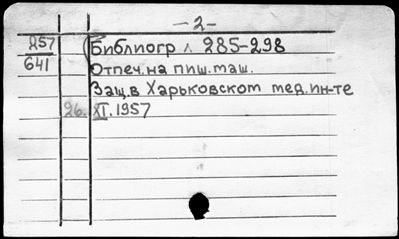 -2-
257 Библиогр л. 285-298
641 Отпеч. на пиш. маш.
Защ. в Харьковском мед. ин-те
26. XI. 1957